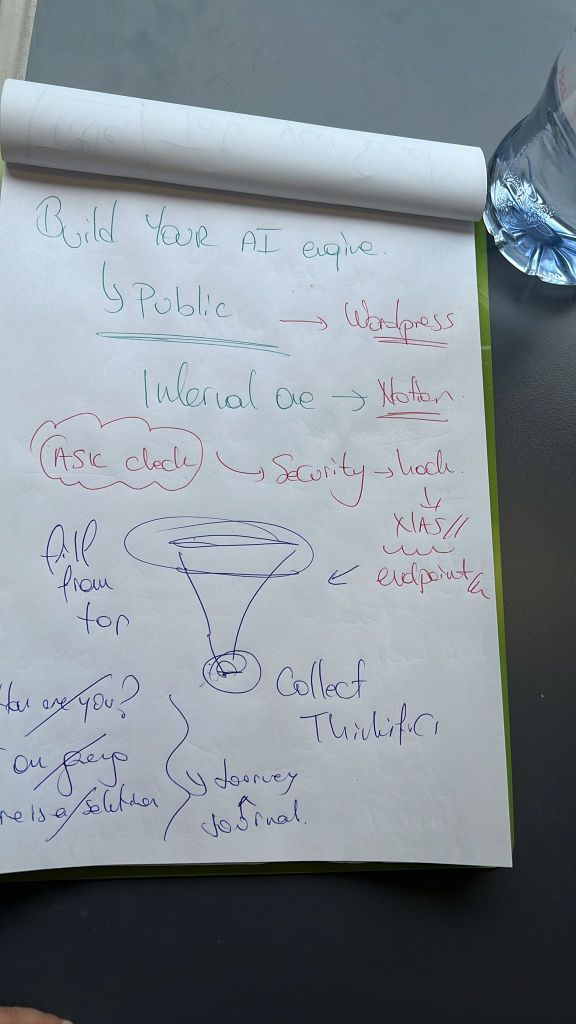 Build YOUR AI engine.
↳ Public → Wordpress
Internal one → Notion.
ASK clock → Security → hack.
↓
endpoint
fill
from
top
Collect
How are you?
on
is a Solution
Journey
Journal.